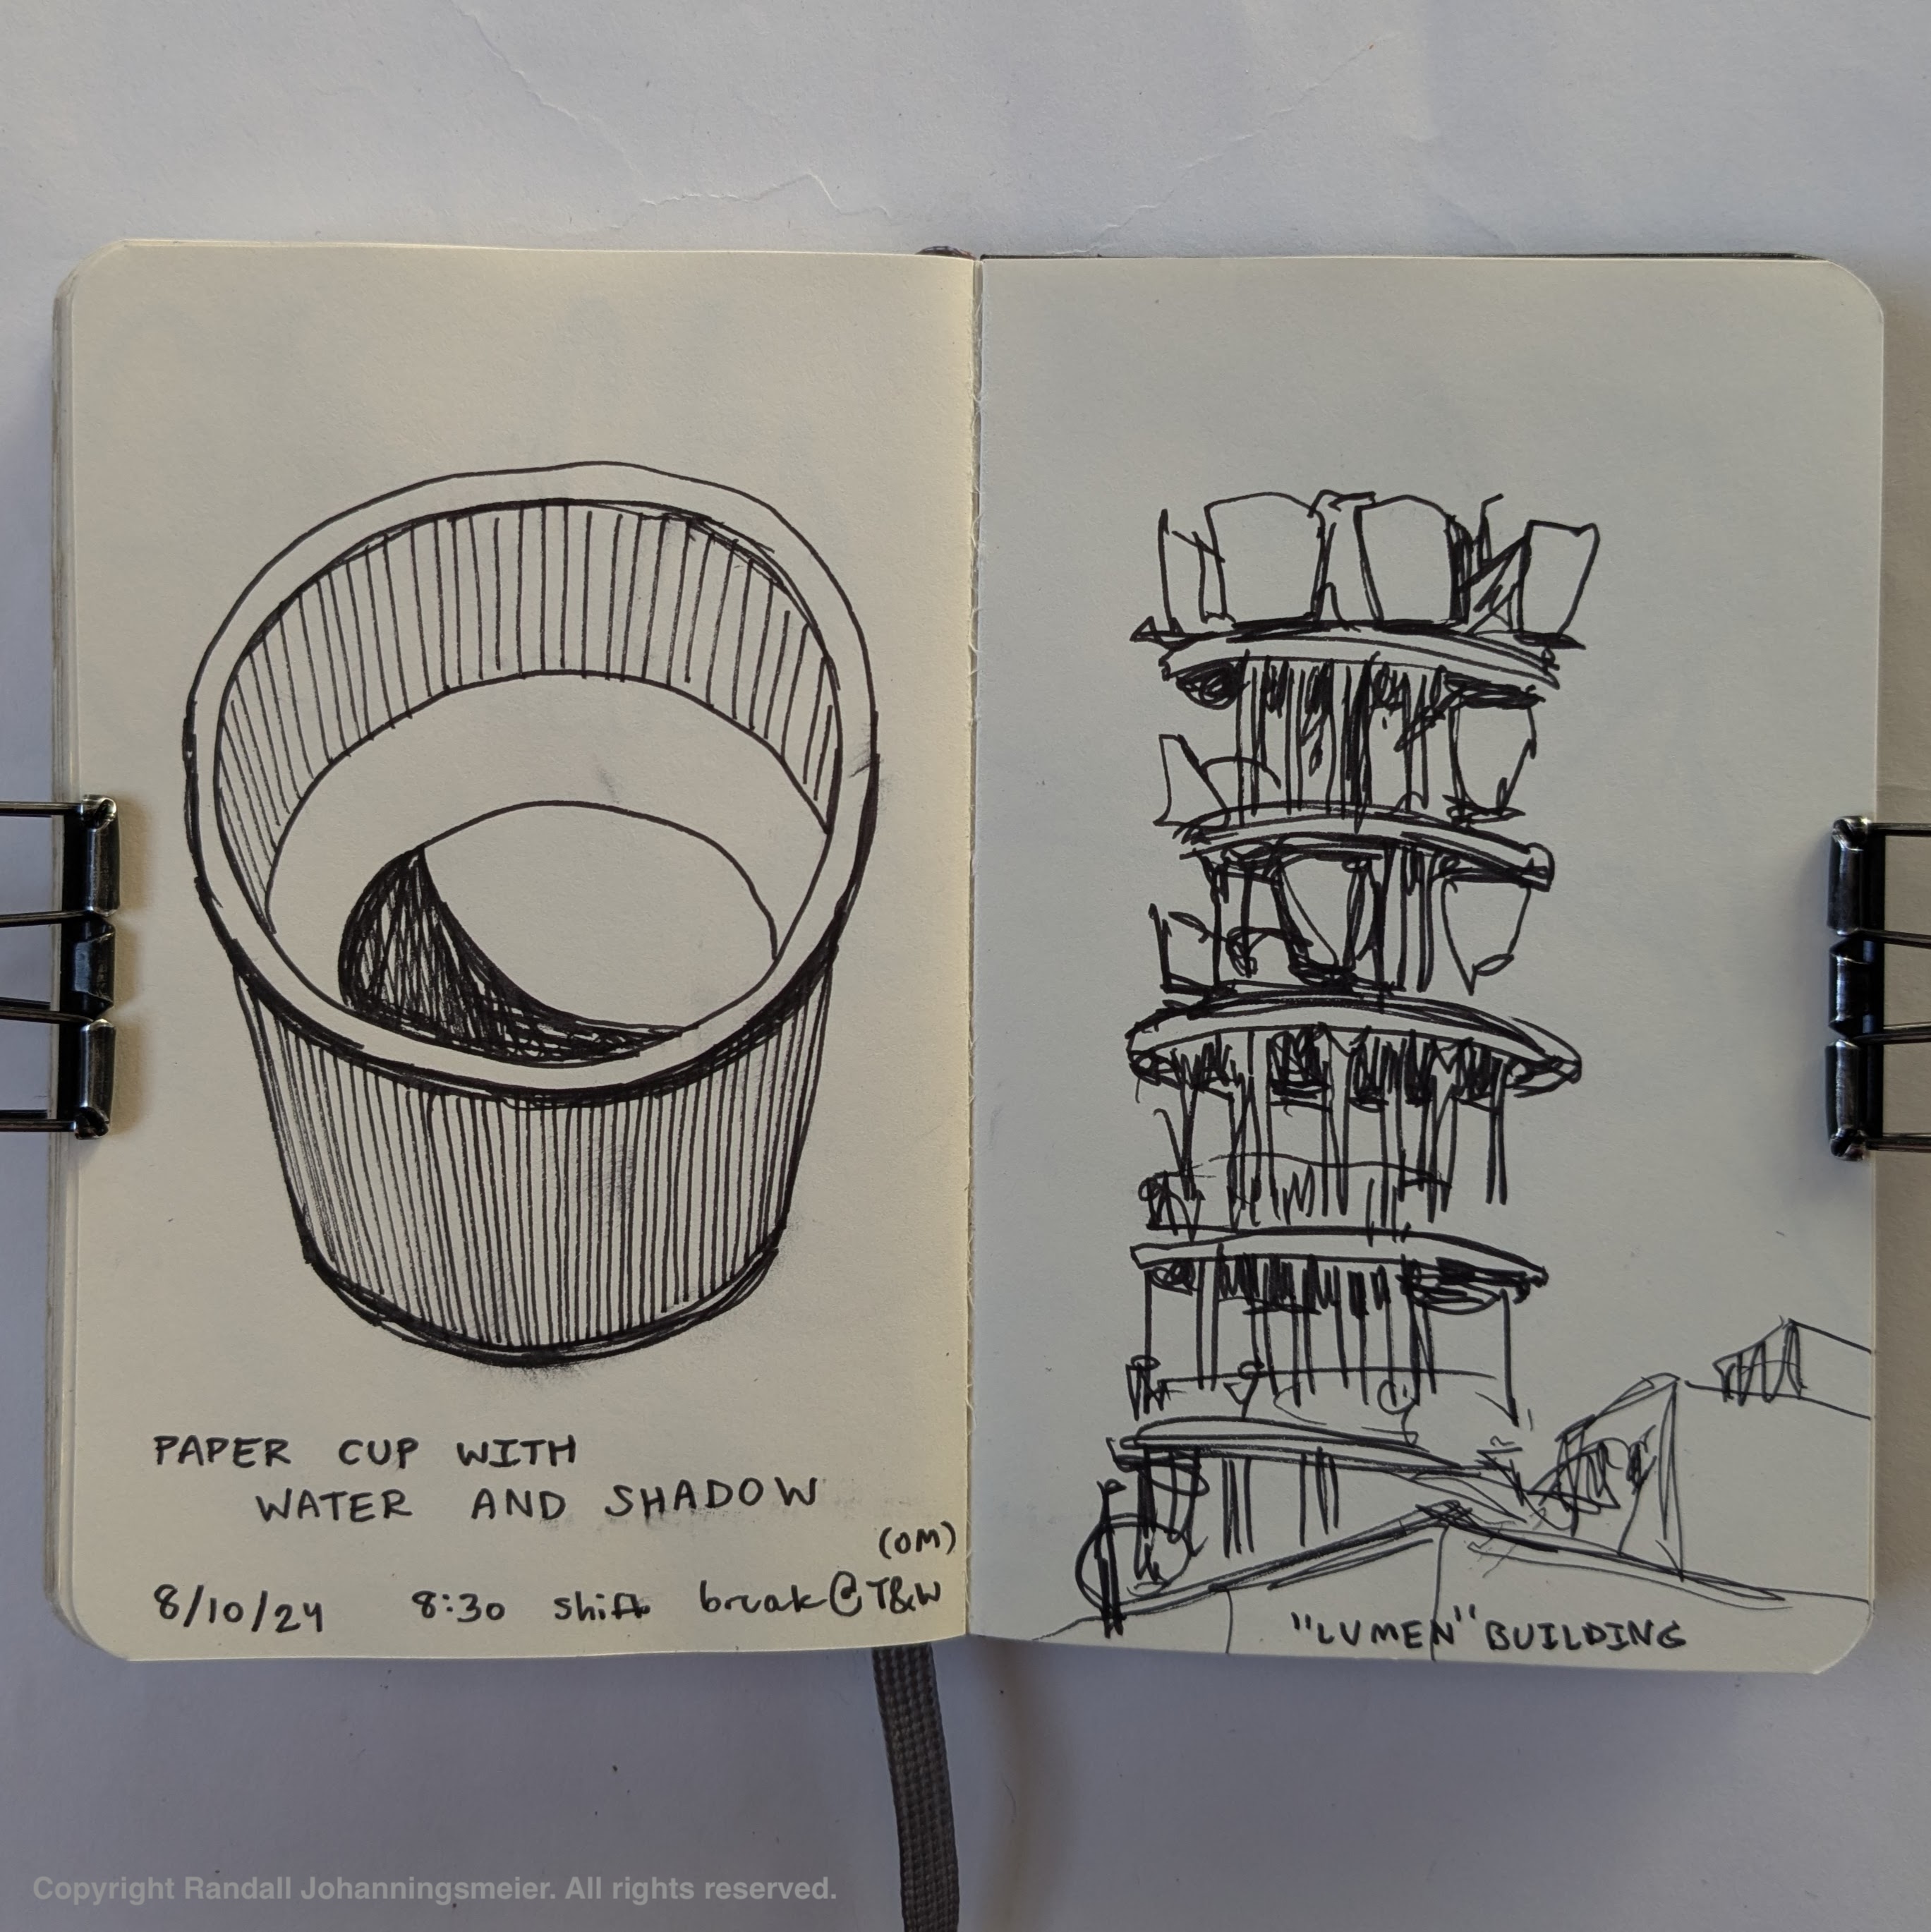 PAPER CUP WITH
WATER AND SHADOW
(OM)
8/10/24 8:30 shift break@T&W
"LVMEN" BUILDING
Copyright Randall Johanningsmeier. All rights reserved.